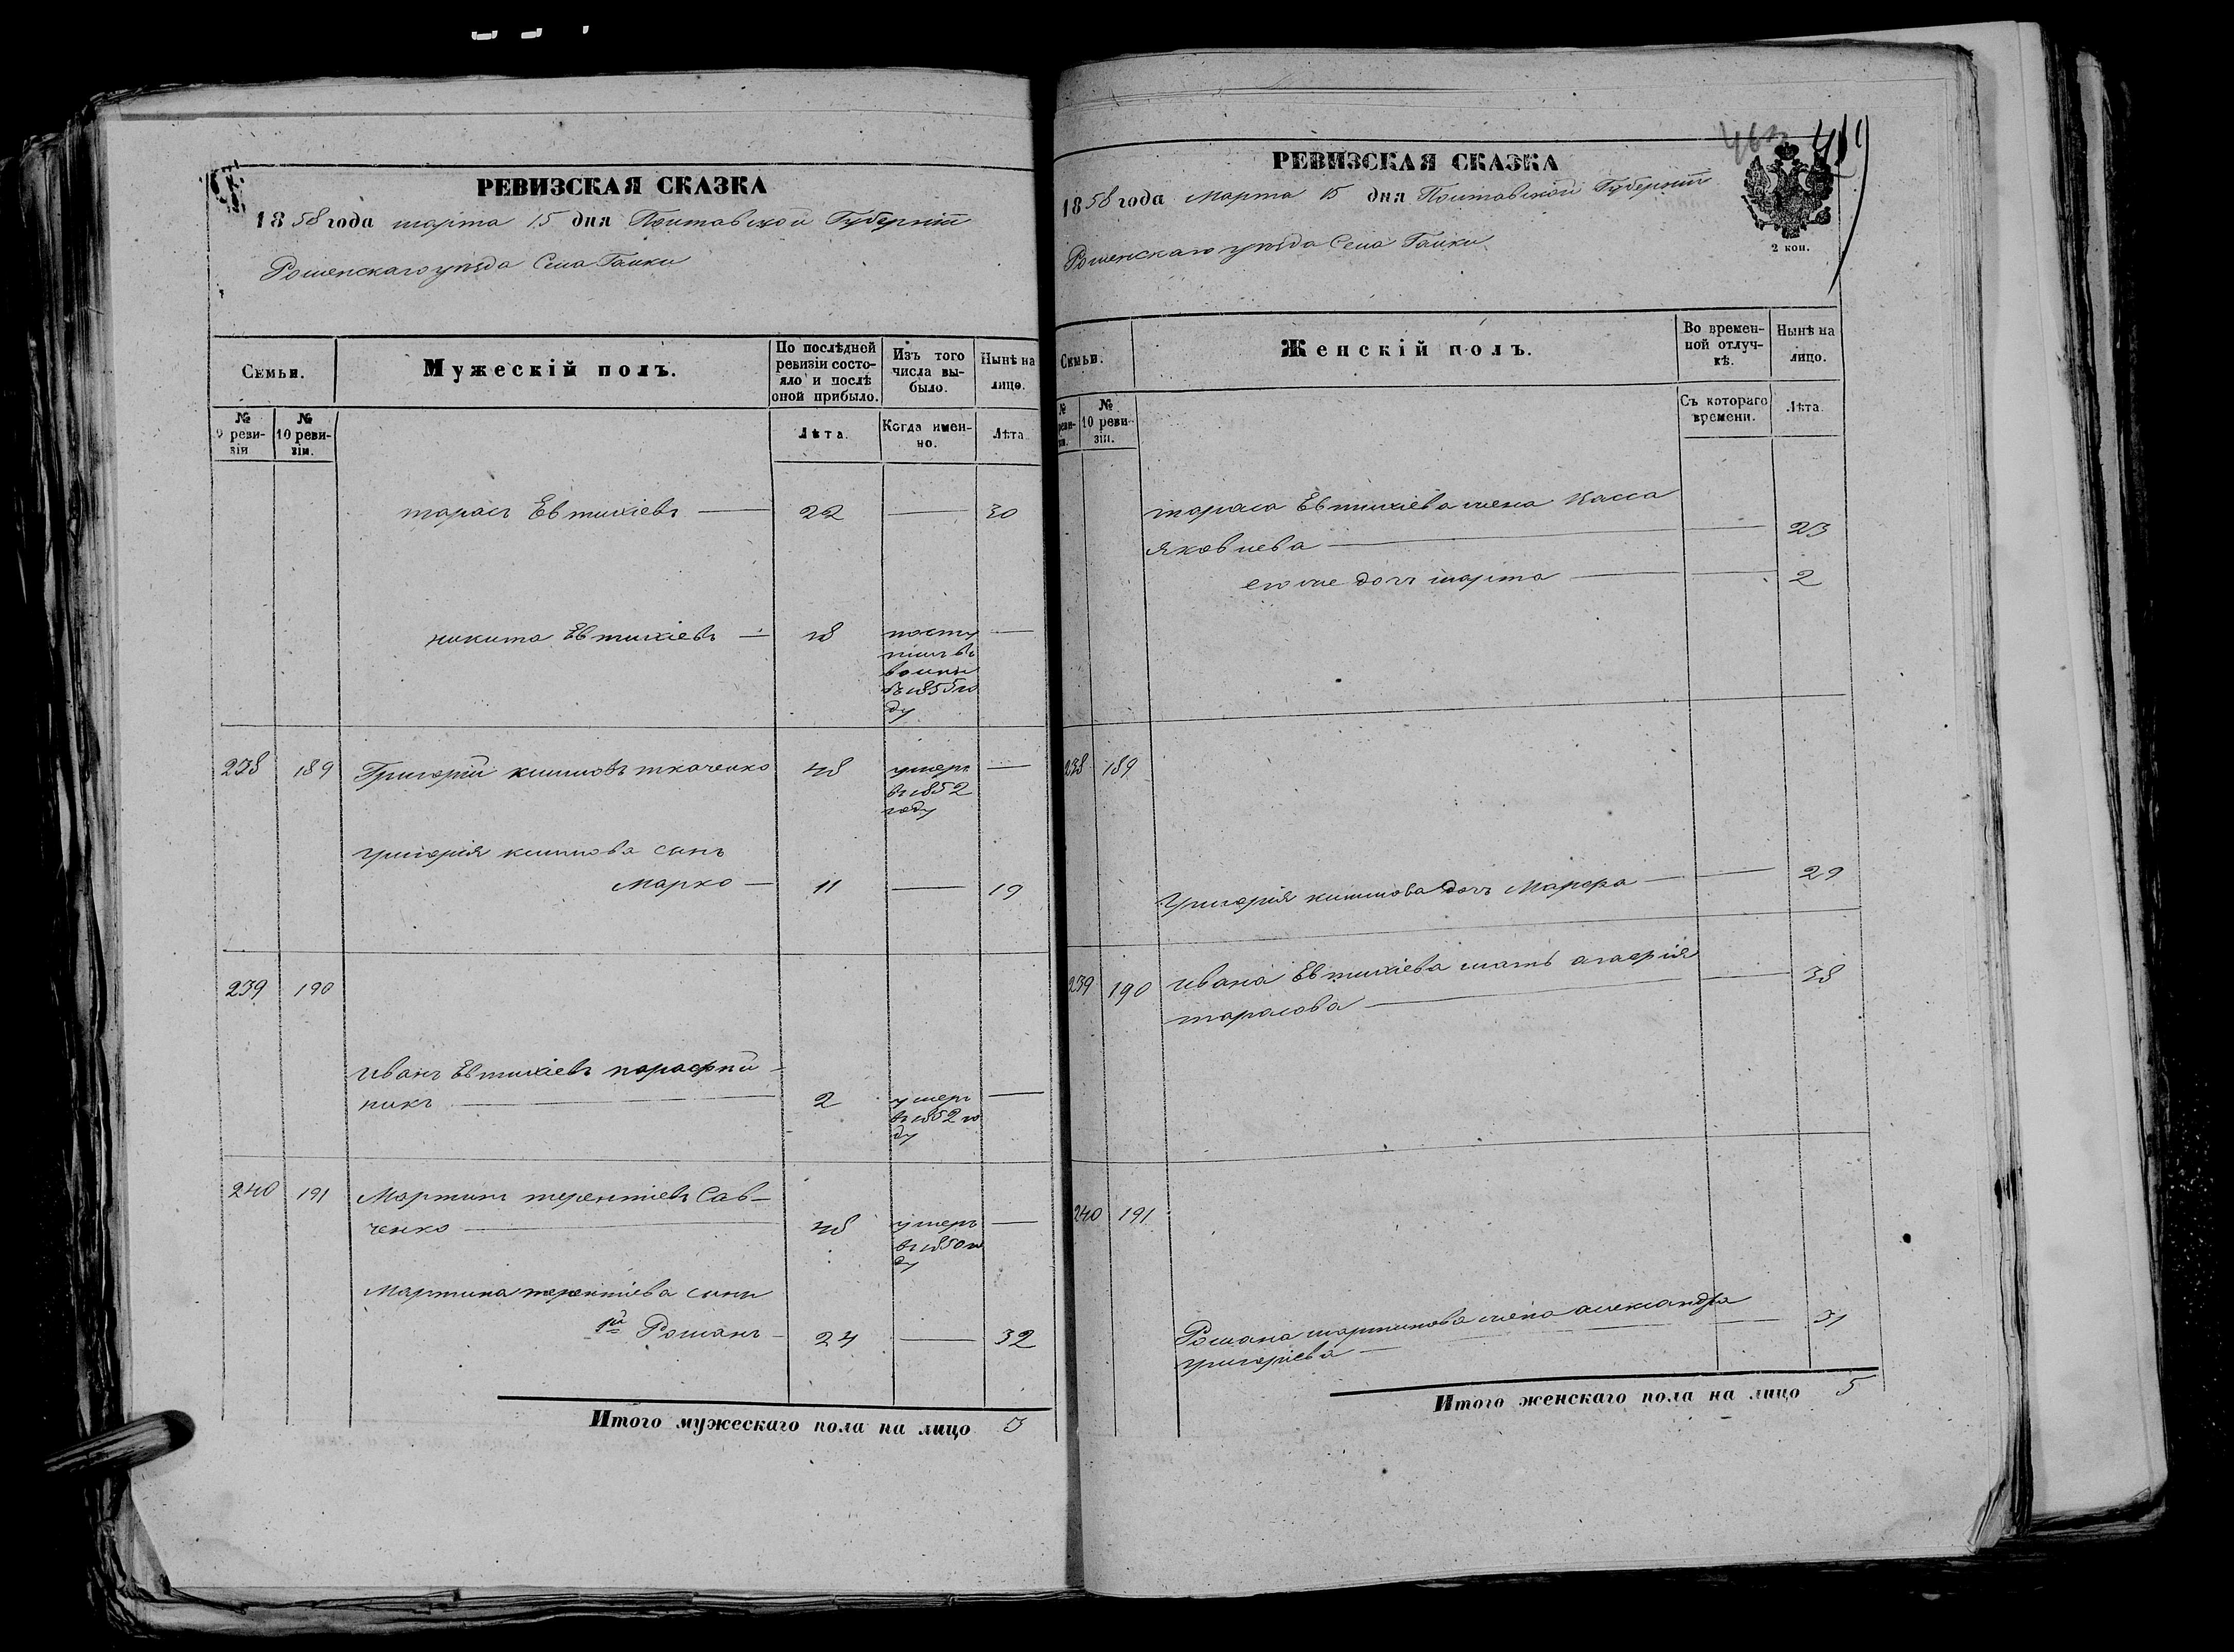 РЕВИЗСКАЯ СКАЗКА
1858 года марта 15 дня Полтавской Губерніи
Роменскаго уѣзда Села Галки
Семьи.
Мужескій полъ.
По послѣдней ревизіи состояло и послѣ оной прибыло.
Изъ того числа выбыло.
Нынѣ на лицо.
№ 9 ревизіи
№ 10 ревизіи.
Лѣта.
Когда именно.
Лѣта
тарасъ Евтихіевъ — 22 — 30
никита Евтихіевъ — 18
посту
пилъ въ
воины
въ 1855 го
ду
238 189 Григорій климовъ ткаченко 48 умеръ —
въ 1852
году
григорія климова сынъ
Марко — 11 — 19
239 190
иванъ Евтихіевъ парафій
никъ — 2 умеръ —
въ 1852 го
ду
240 191 Мартинъ терентіевъ Сав—
ченко — 48 умеръ —
въ 1850 го
ду
Мартина терентіева сыны
1й Романъ — 24 — 32
Итого мужескаго пола на лицо 3
419
РЕВИЗСКАЯ СКАЗКА
1858 года Марта 15 дня Полтавской Губерніи
Роменскаго уѣзда Села Галки
2 коп.
Семьи.
Женскій полъ.
Во временной отлучкѣ.
Нынѣ на лицо.
№ ревизіи.
№ 10 ревизіи.
Съ котораго времени.
Лѣта.
тараса Евтихіева жена Васса
яковлева — — 23
его же дочь марта — — 2
238 189
Григорія климова дочь Марфа — — 29
239 190 ивана Евтихіева мать агафія — 38
тарасова —
240 191
Романа мартинова жена александра
григоріева — — 31
Итого женскаго пола на лицо 5